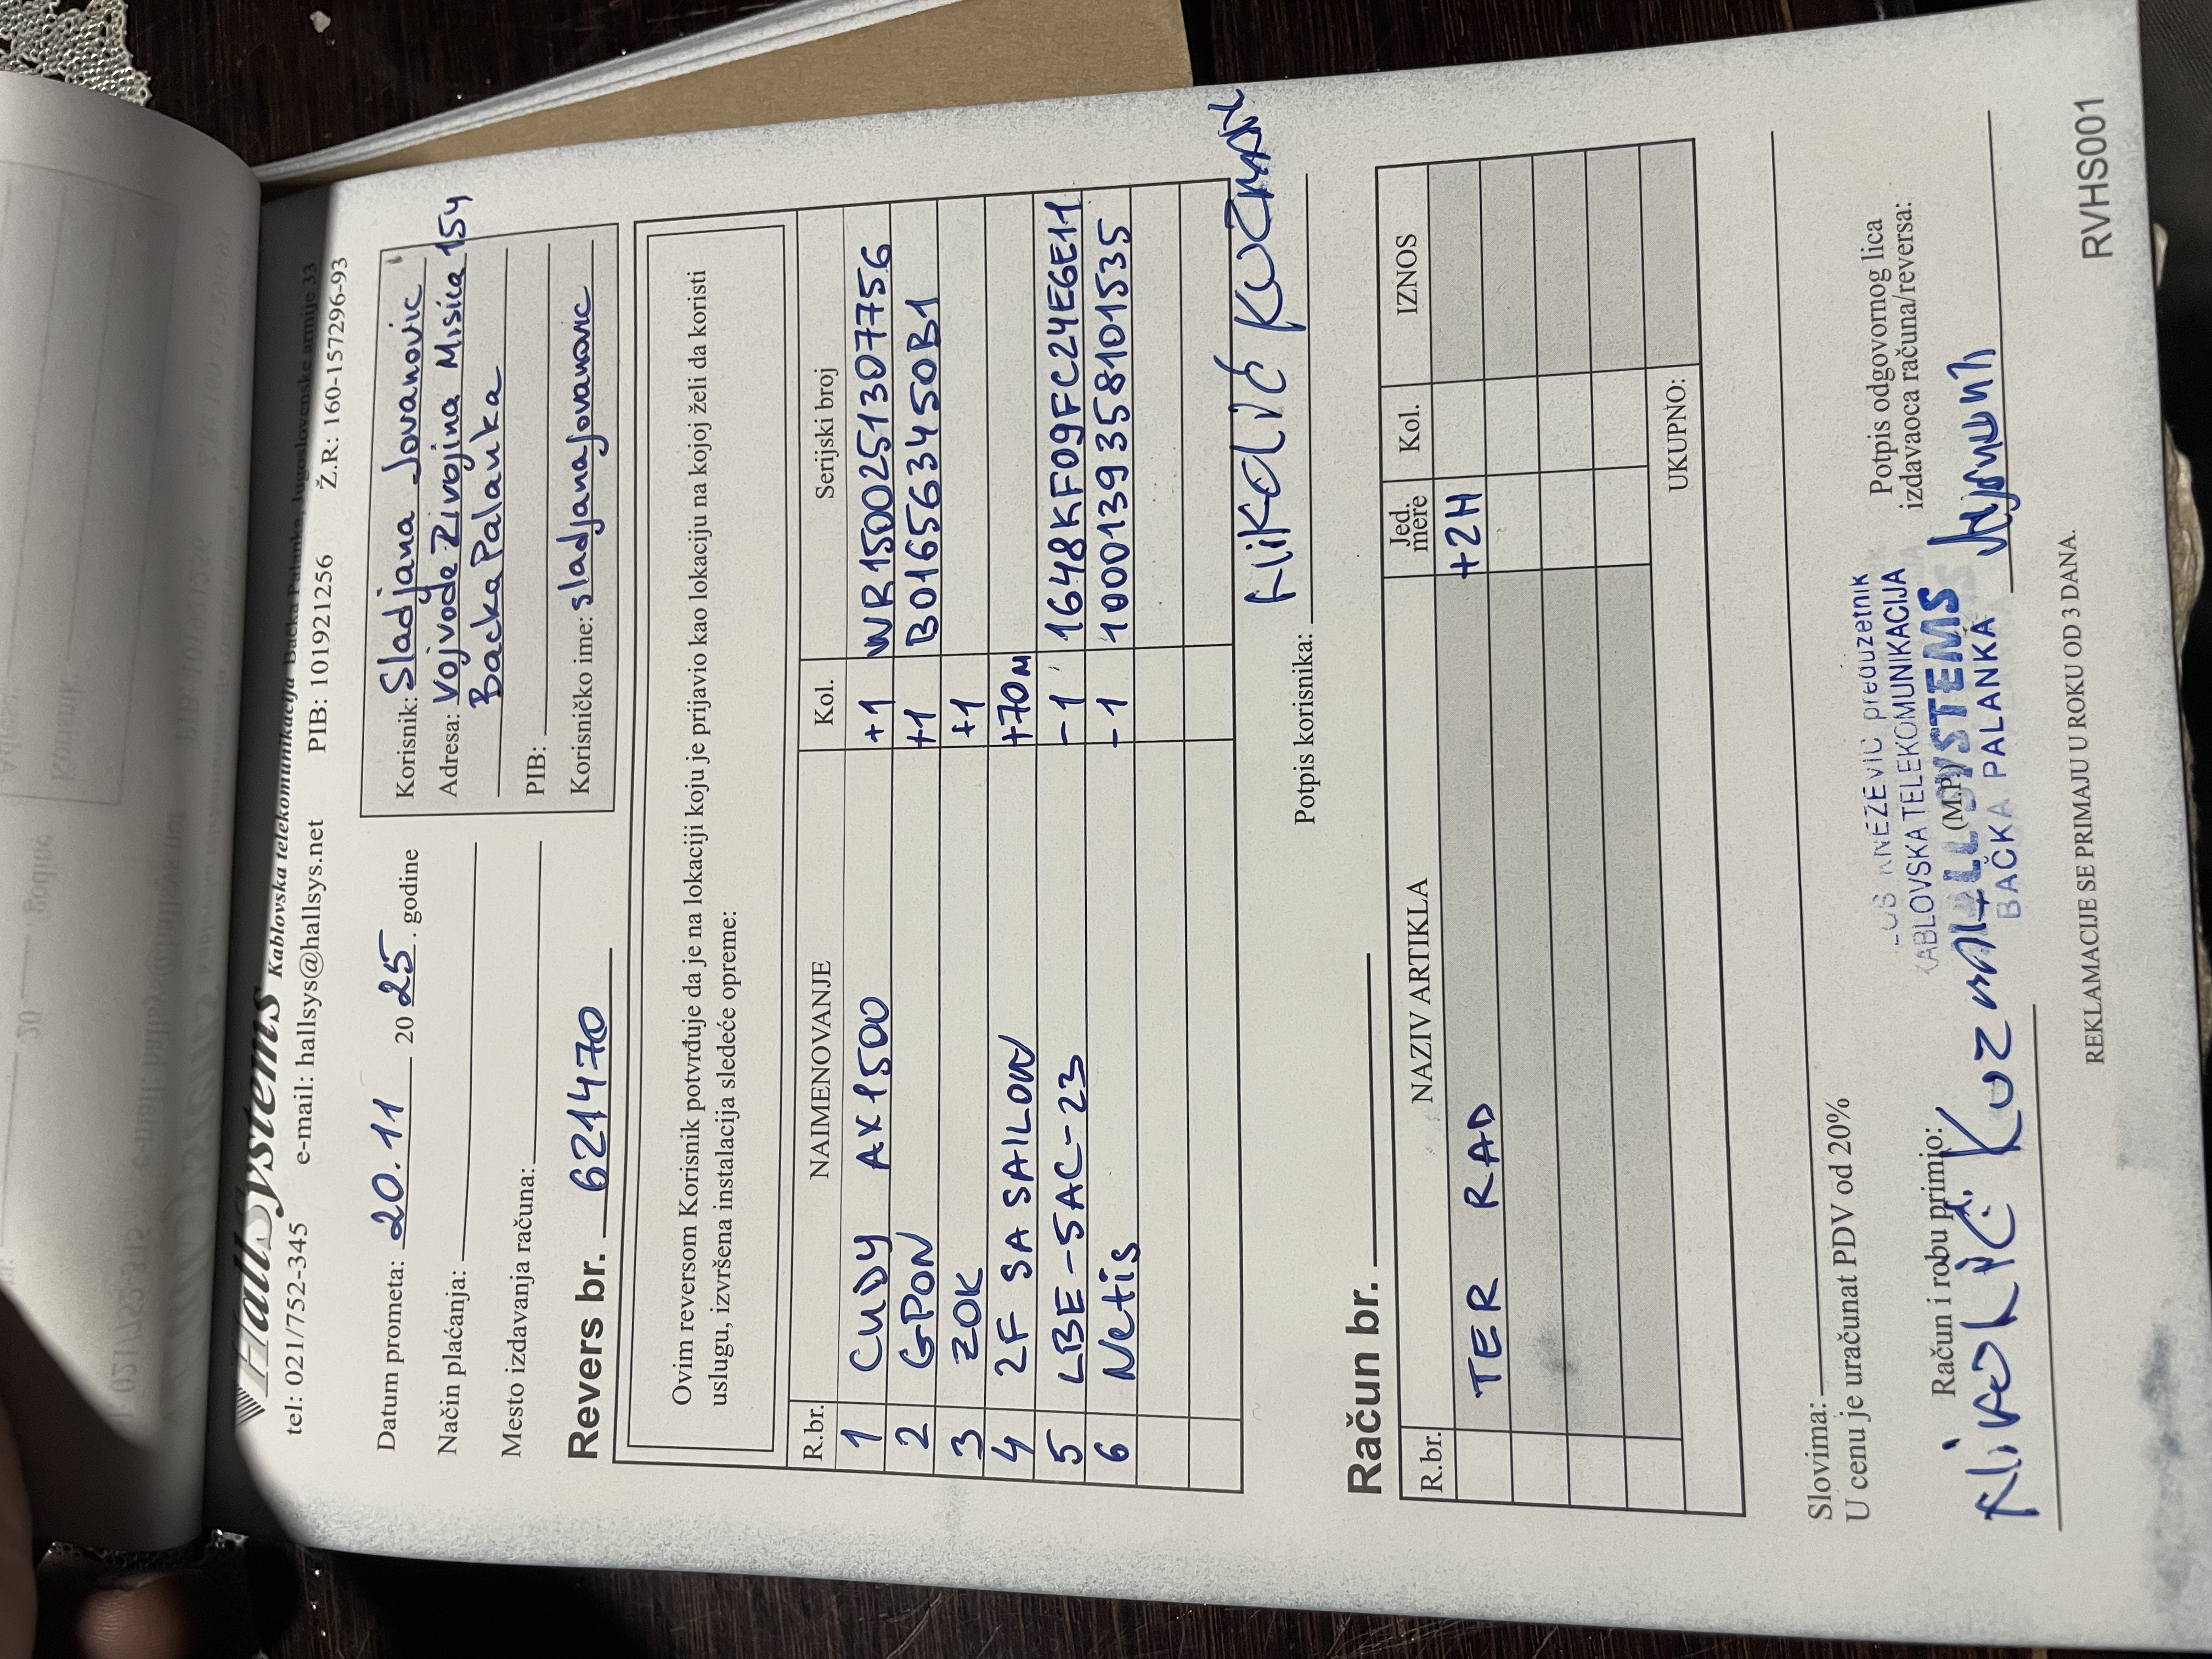 HallSystems Kablovska telekomunikacija Bačka Palanka, Jugoslovenske armije 33
tel: 021/752-345 e-mail: hallsys@hallsys.net PIB: 101921256 Ž.R: 160-157296-93
Datum prometa: 20.11 2025. godine
Način plaćanja:
Mesto izdavanja računa:
Revers br. 621470
Korisnik: Sladjana Jovanovic
Adresa: Vojvode Zivojina Misica 154
Backa Palanka
PIB:
Korisničko ime: sladjanajovanovic
Ovim reversom Korisnik potvrđuje da je na lokaciji koju je prijavio kao lokaciju na kojoj želi da koristi
uslugu, izvršena instalacija sledeće opreme:
R.br. NAIMENOVANJE Kol. Serijski broj
1 CUDY AX1500 +1 WR1500251307756
2 GPON +1 B016563450B1
3 ZOK +1
4 2F SA SAJLOM +70M
5 LBE-5AC-23 -1 1648KF09FC24E6E11
6 Netis -1 1000139358101535
Potpis korisnika:
Račun br.
R.br. NAZIV ARTIKLA Jed. mere Kol. IZNOS
TER RAD +2H
UKUPNO:
Slovima:
U cenu je uračunat PDV od 20%
Račun i robu primio:
(M.P.)
KNEZEVIC preduzetnik
KABLOVSKA TELEKOMUNIKACIJA
HALL SYSTEMS
BAČKA PALANKA
Potpis odgovornog lica
izdavaoca računa/reversa:
REKLAMACIJE SE PRIMAJU U ROKU OD 3 DANA.
RVHS001